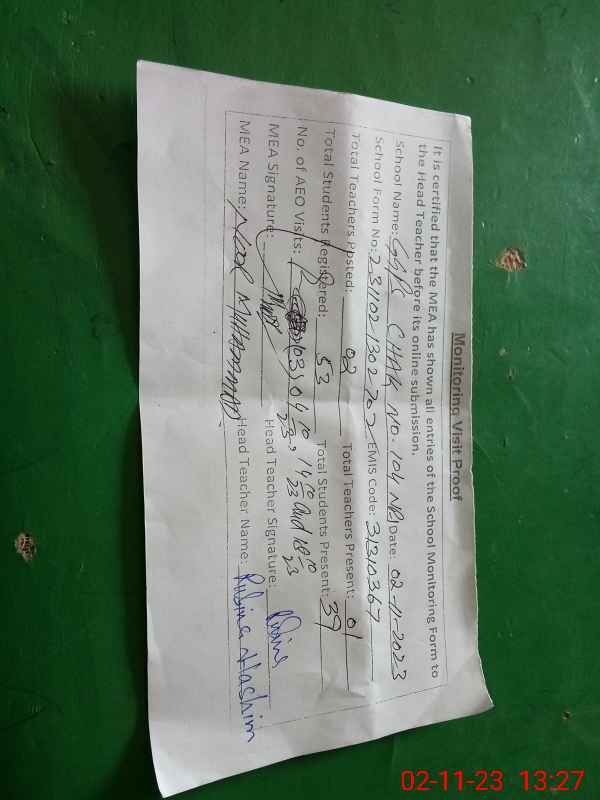 Monitoring Visit Proof
It is certified that the MEA has shown all entries of the School Monitoring Form to
the Head Teacher before its online submission.
School Name: GGPS CHAK NO. 104 NP Date: 02-11-2023
School Form No: 2311021302702 EMIS Code: 31310367
Total Teachers Posted: 02 Total Teachers Present: 01
Total Students Registered: 53 Total Students Present: 39
No. of AEO Visits: (03) 04 10/23, 14 10/23 and 18 10/23
MEA Signature: Head Teacher Signature: Rubina
MEA Name: Noor Muhammad Head Teacher Name: Rubina Hashim
02-11-23 13:27